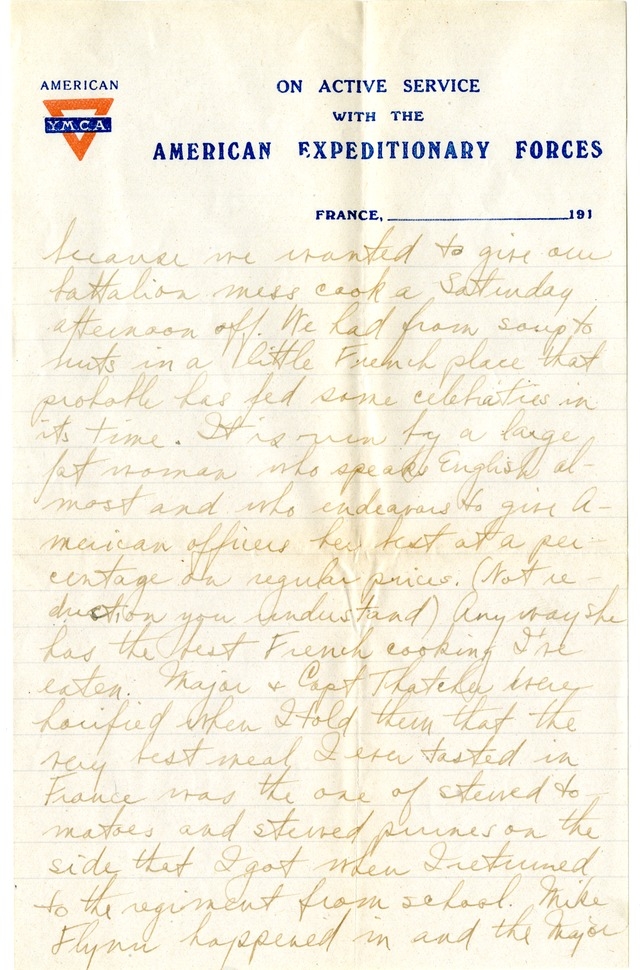 AMERICAN
Y.M.C.A.
ON ACTIVE SERVICE
WITH THE
AMERICAN EXPEDITIONARY FORCES
FRANCE, 191
because we wanted to give our
battalion mess cook a Saturday
afternoon off. We had from soup to
nuts in a little French place that
probable has fed some celebrities in
its time. It is run by a large
fat woman who speaks English al-
most and who endeavors to give A-
merican officers her best at a per-
centage on regular prices. (Not re-
duction you understand) Anyway she
has the best French cooking I've
eaten. Major & Capt Thatcher were
horified when I told them that the
very best meal I ever tasted in
France was the one of stewed to-
matoes and stewed prunes on the
side that I got when I returned
to the regiment from school. Mike
Flynn happened in and the Major